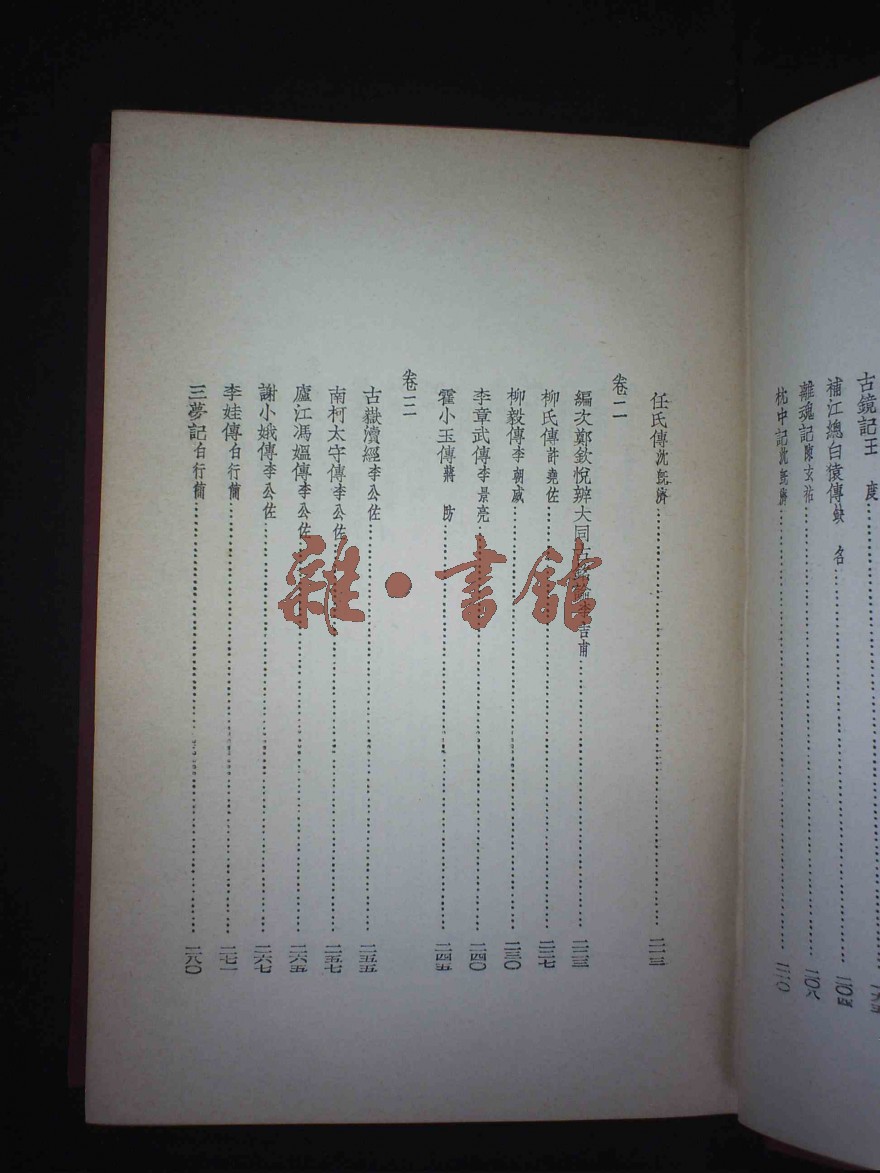 古鏡記王 度
補江總白猿傳缺 名……二〇四
離魂記陳玄祐……二〇八
枕中記沈既濟……二一〇
任氏傳沈既濟……二一三
卷二
編次鄭欽悅辨大同古銘論李吉甫……二二三
柳氏傳許堯佐……二二七
柳毅傳李朝威……二三〇
李章武傳李景亮……二四〇
霍小玉傳蔣 防……二四五
卷三
古嶽瀆經李公佐……二五五
南柯太守傳李公佐……二五七
廬江馮媼傳李公佐……二六五
謝小娥傳李公佐……二六七
李娃傳白行簡……二七一
三夢記白行簡……二八〇
雜·書館